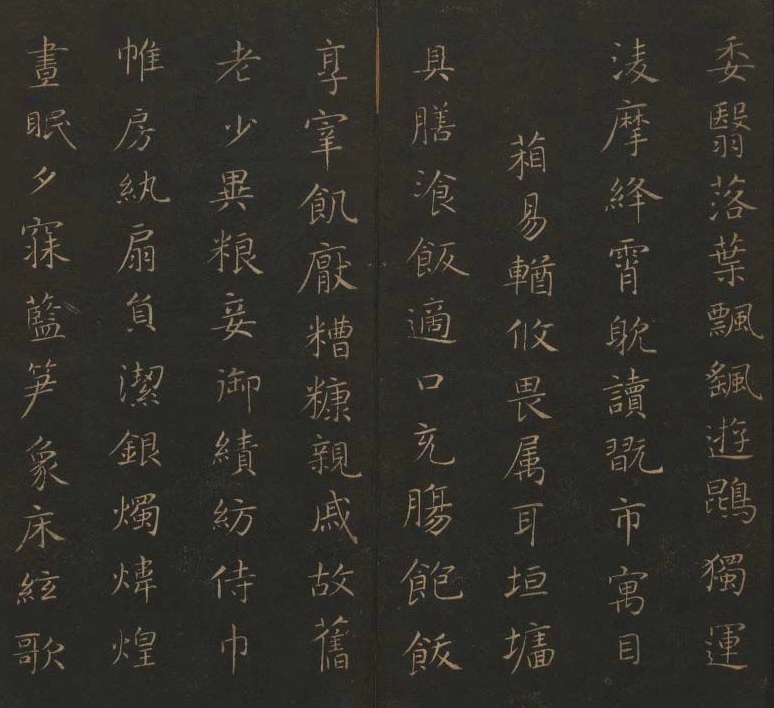 委翳落葉飄颻遊鵾獨運
淩摩絳霄耽讀翫市寓目
箱易輶攸畏属耳垣墻
具膳湌飯適口充腸飽飫
享宰飢厭糟糠親戚故舊
老少異粮妾御績紡侍巾
帷房紈扇負潔銀燭煒煌
晝眠夕寐藍笋象床絃歌